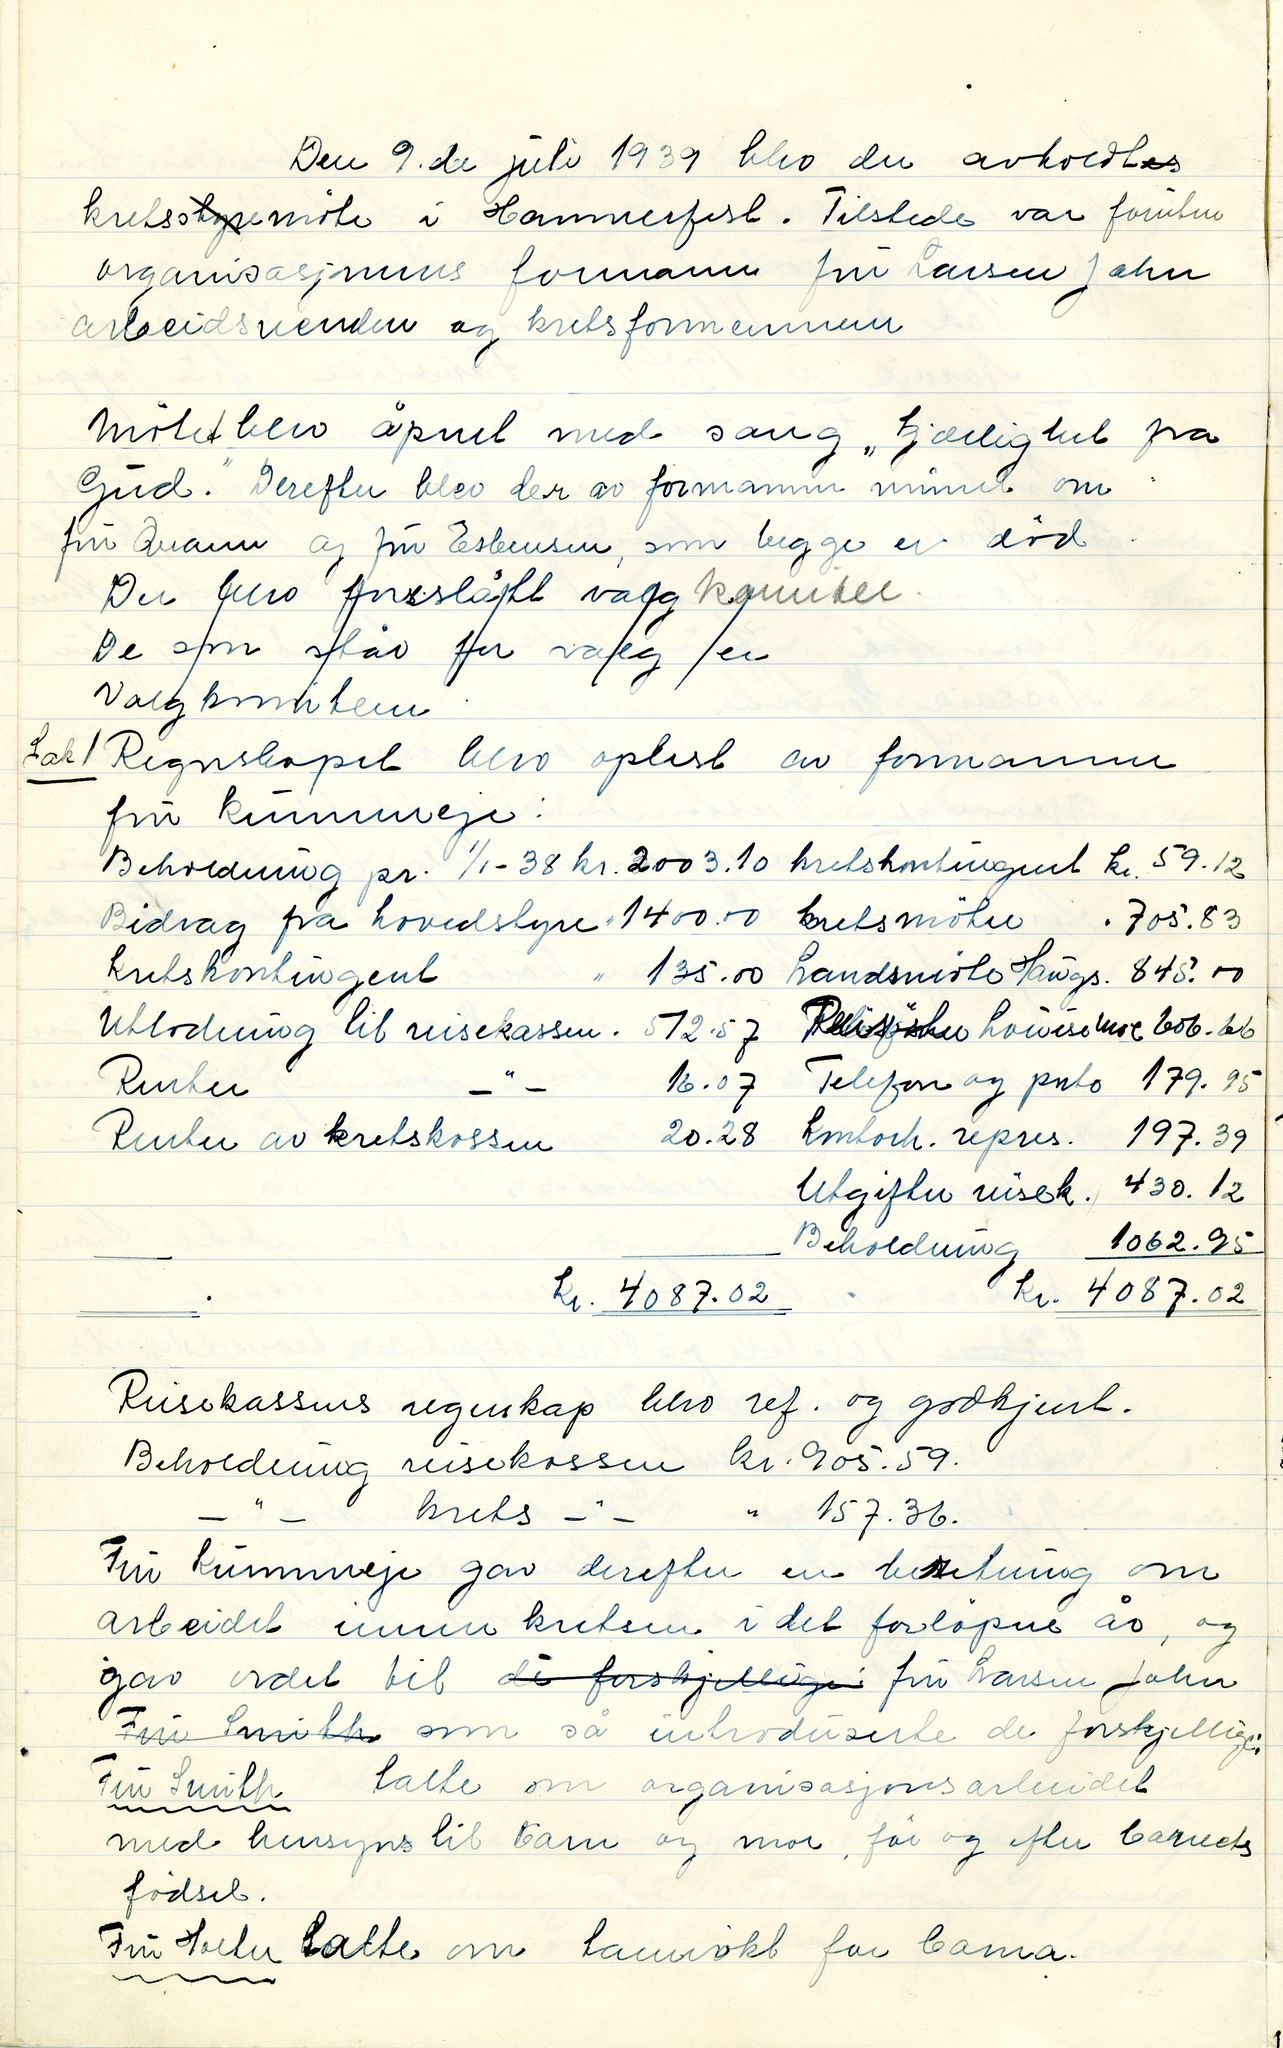 Den 9. de juli 1939 blev der avholdtes
kretsstyremöte i Hammerfest. Tilstede var foruten
organisasjonens formann fru Larsen Jahn
arbeidsnevnden og kretsformennene
Mötet blev åpnet med sang „Kjærlighet fra
Gud." Derefter blev der av formannen minnet om
fru Qvam og fru Esbensen, som begge er död.
Der blev foreslått valgkomitee.
De som står for valg er
Valgkomiteen
Sak 1 Regnskapet blev oplest av formannen
fru Kummeneje:
Beholdning pr. 1/1-38 kr. 2003.10 kretskontingent kr. 59.12
Bidrag fra hovedstyre " 1400.00 kretsmöter . 705.83
Kretskontingent " 135.00 Landsmöte Haugs. 845.00
Utlodning til reisekassen . 512.57 Louisemoe 606.66
Renter -"- 16.07 Telefon og porto 179.95
Renter av kretskassen 20.28 Kontorh. repres. 197.39
Utgifter reisek. 430.12
Beholdning 1062.95
kr. 4087.02 kr. 4087.02
Reisekassens regnskap blev ref. og godkjent.
Beholdning reisekassen kr. 905.59.
-"- krets -"- " 157.36.
Fru Kummeneje gav derefter en beretning om
arbeidet innen kretsen i det forlöpne år, og
gav ordet til de forskjellige: fru Larsen Jahn
Fru Smith som så introduserte de forskjellige:
Fru Smith talte om organisasjonsarbeidet
med hensyns til barn og mor, för og efter barnets
födsel.
Fru Holter talte om tannrökt for barna.